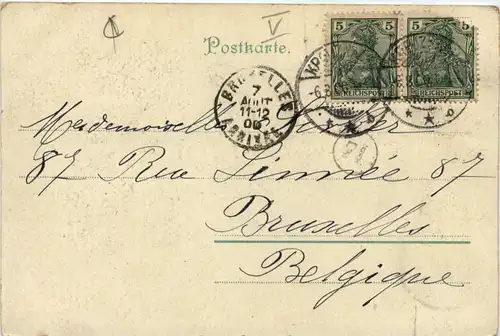 V
5 5 5 5
Postkarte.
REICHSPOST REICHSPOST
BRUXELLES
7
AOUT
11-12
ARRIVÉE
Mademoiselles
87 Rue Linnée 87
Bruxelles
Belgique